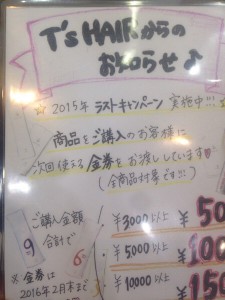 T's HAIRからの
お知らせ♪
☆2015年 ラストキャンペーン 実施中!!!
商品をご購入のお客様に
次回使える金券をお渡ししています♥
(全商品対象です!!!)
ご購入金額
合計で
・¥3000以上 ¥50
・¥5000以上 ¥100
・¥10000以上 ¥150
※金券は
2016年2月末まで